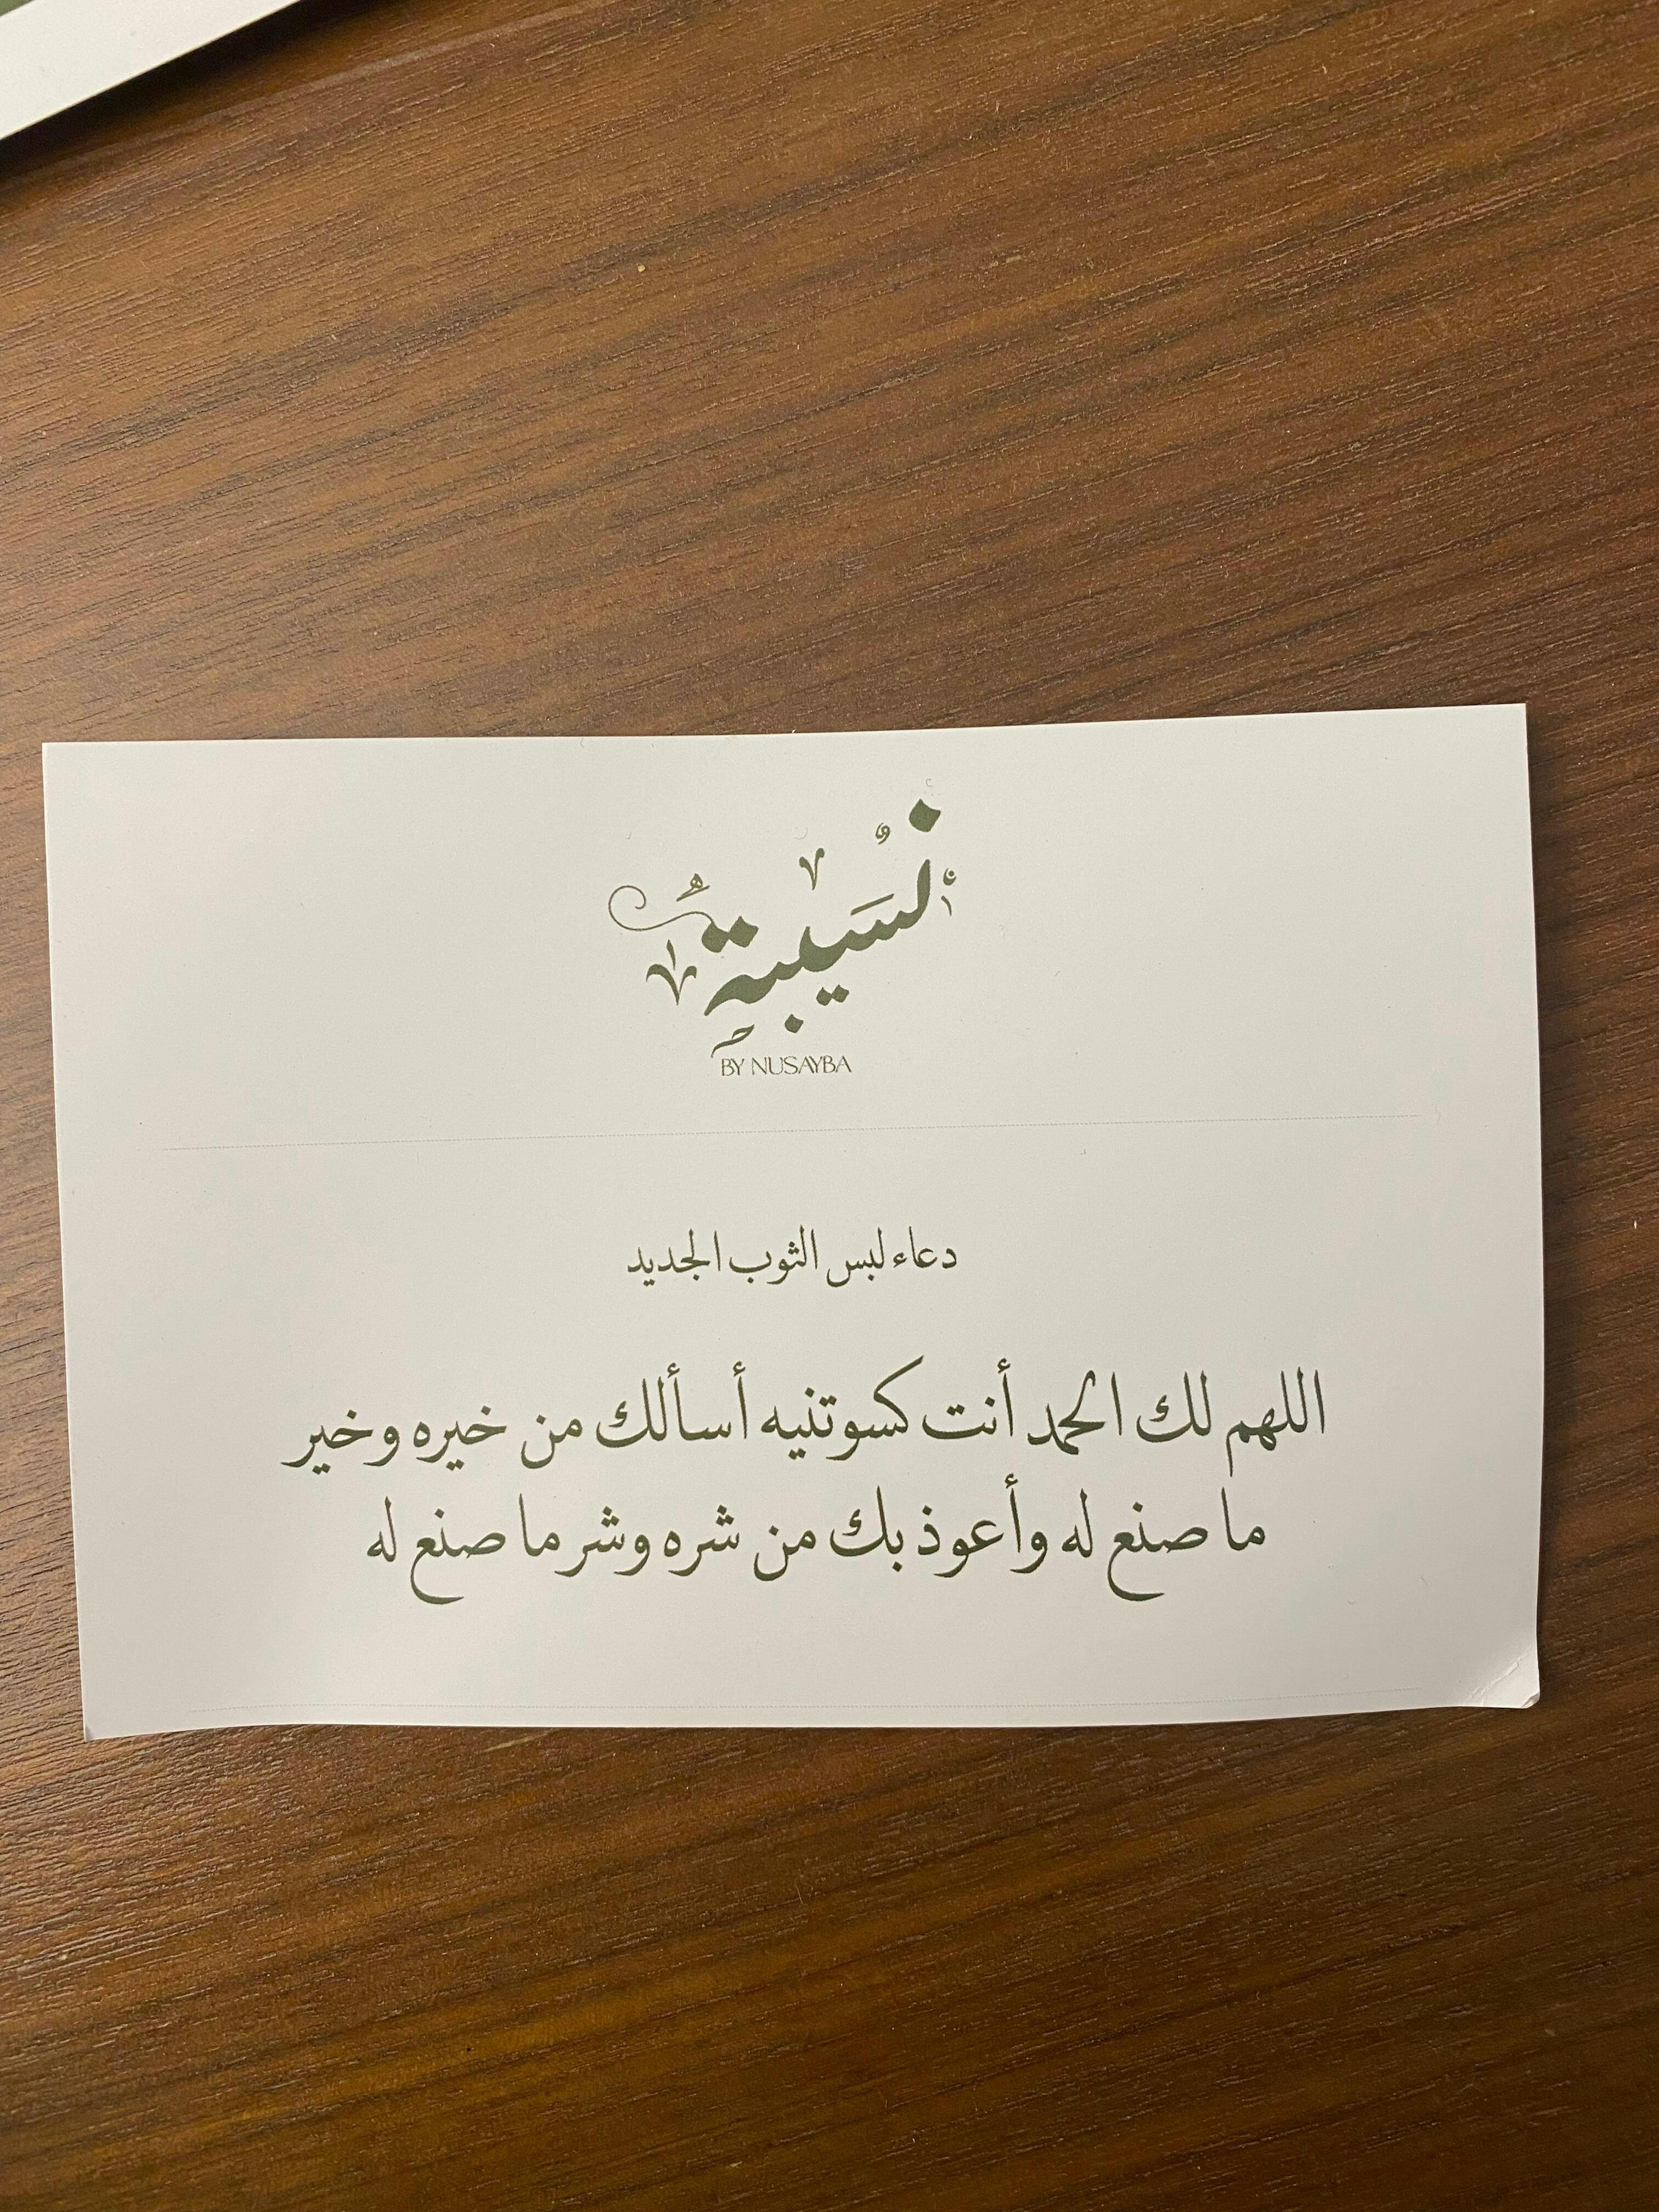 نُسَيبة
BY NUSAYBA
دعاء لبس الثوب الجديد
اللهم لك الحمد أنت كسوتنيه أسألك من خيره وخير
ما صنع له وأعوذ بك من شره وشر ما صنع له